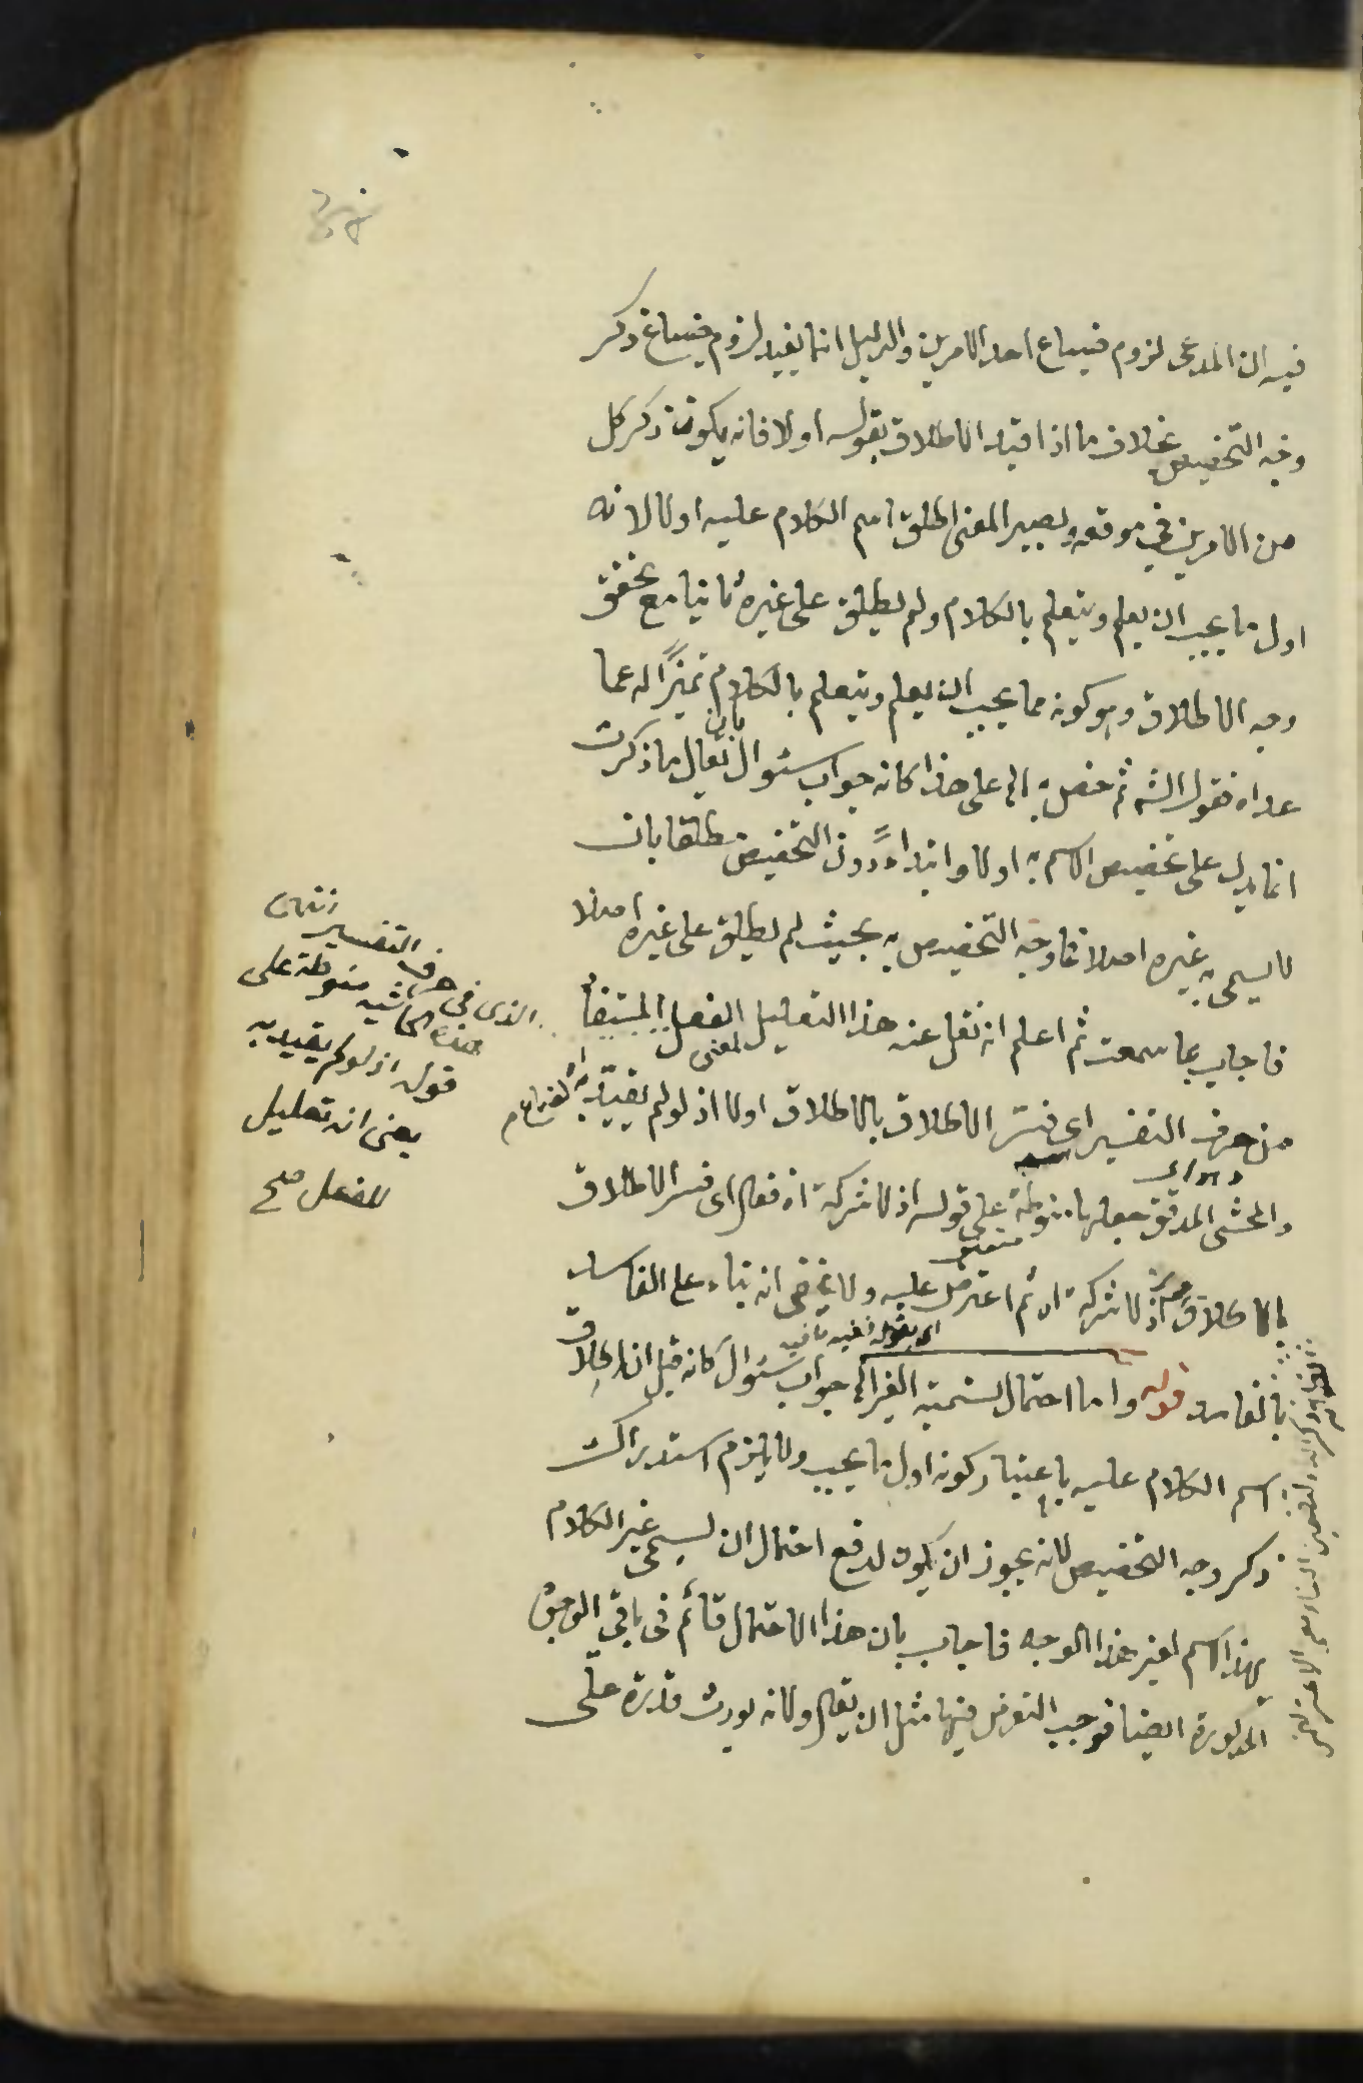 فيه ان المدعى لزوم ضياع احد الامرين والدليل انما يفيد لزوم ضياع ذكر
وجه التخصيص بخلاف ما اذا قيد الاطلاق بقوله اولا فانه يكون ذكر كل
من الامرين في موقعه ويصير المعنى اطلق اسم الكلام عليه اولا لانه
اول ما يجب ان يعلم ويتعلم بالكلام ولم يطلق على غيره ثانيا مع تحقق
وجه الاطلاق وهو كونه مما يجب ان يعلم ويتعلم بالكلام تميزًا له عما
عداه فقول الشه ثم خص به الى على هذا كانه جواب سئوال بان يقال ما ذكرت
انما يدل على تخصيص الاسم به اولا وابتداءً دون التخصيص مطلقا بان
لا يسمى به غيره اصلا فما وجه التخصيص به بحيث لم يطلق على غيره اصلا
فاجاب بما سمعت ثم اعلم انه نقل عنه هذا التعليل لمعنى الفعل المستفاد
من حرف التفسير اى فسّر الاطلاق بالاطلاق اولا اذ لو لم يقيّد به
والمحشى المدقق جعلها منوطة على قوله اذ لا شركة اذ فعال اى فسر الاطلاق
بالاطلاق اذ لا شركة اه ثم اعترض عليه ولا يخفى انه بناء على الفاسد
بالفاسد قوله واما احتمال تسمية الغير الخ جواب سئوال كانه قيل ان اطلاق
اسم الكلام عليه باعتبار كونه اول ما يجب ولا يلزم استدراك
ذكر وجه التخصيص لانه يجوز ان يكون لدفع احتمال ان يسمى غير الكلام
بهذا الاسم لغير هذا الوجه فاجاب بان هذا الاحتمال قائم فى باقى الوجوه
المذكورة ايضا فوجب التعرض فيها مثل ان يقال ولانه يورث قدرة على
الذى فى حرف التفسير
هذه الحاشيه منوطة على
قوله اذ لو لم يقيد به
يعنى انه تعليل
للفعل صح